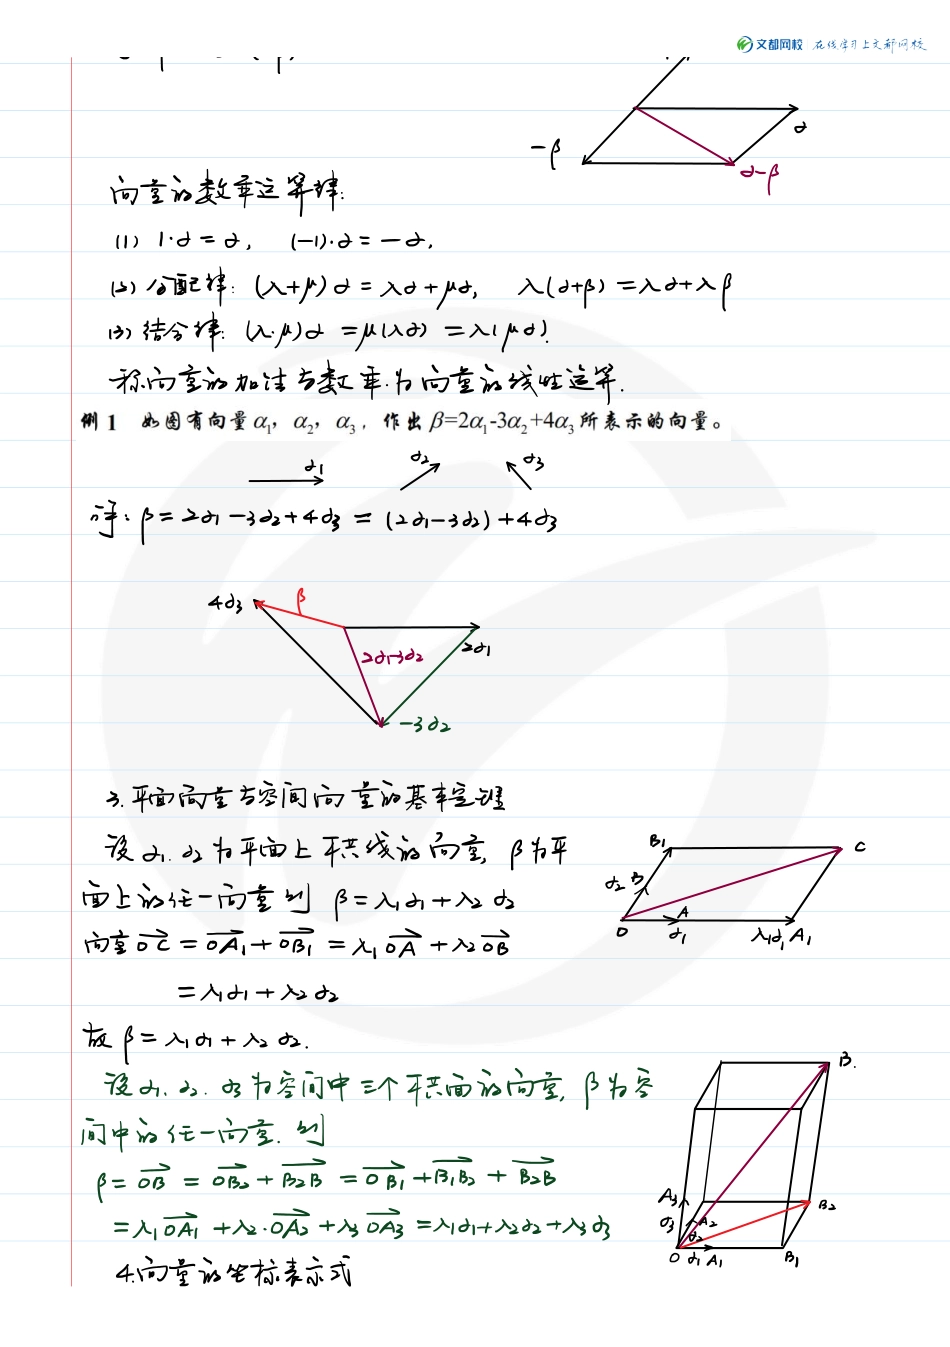 文都网校 在线学习上文都网校
-β
α
α-β
向量的数乘运算律:
(1) 1·α=α, (-1)·α=-α.
(2) 分配律: (λ+μ)α=λα+μα, λ(α+β)=λα+λβ
(3) 结合律: (λ·μ)α=μ(λα)=λ(μα).
称向量的加法与数乘为向量的线性运算.
例 1 如图有向量 α₁, α₂, α₃, 作出 β=2α₁-3α₂+4α₃ 所表示的向量。
α₁ α₂ α₃
解: β=2α₁-3α₂+4α₃=(2α₁-3α₂)+4α₃
4α₃ β
2α₁-3α₂ 2α₁
-3α₂
3. 平面向量与空间向量的基本定理
设 α₁. α₂ 为平面上不共线的向量, β为平
面上的任一向量 则 β=λ₁α₁+λ₂α₂
B₁ C
α₂ B
O A α₁ λ₁α₁ A₁
向量 \overrightarrow{OC}=\overrightarrow{OA₁}+\overrightarrow{OB₁}=λ₁\overrightarrow{OA}+λ₂\overrightarrow{OB}
=λ₁α₁+λ₂α₂
故 β=λ₁α₁+λ₂α₂.
设 α₁. α₂. α₃ 为空间中三个不共面的向量, β为空
间中的任一向量. 则
β=\overrightarrow{OB}=\overrightarrow{OB₂}+\overrightarrow{B₂B}=\overrightarrow{OB₁}+\overrightarrow{B₁B₂}+\overrightarrow{B₂B}
=λ₁\overrightarrow{OA₁}+λ₂·\overrightarrow{OA₂}+λ₃\overrightarrow{OA₃}=λ₁α₁+λ₂α₂+λ₃α₃
B.
A₃ B₂
α₃ A₂
α₂
O α₁ A₁ B₁
4. 向量的坐标表示式